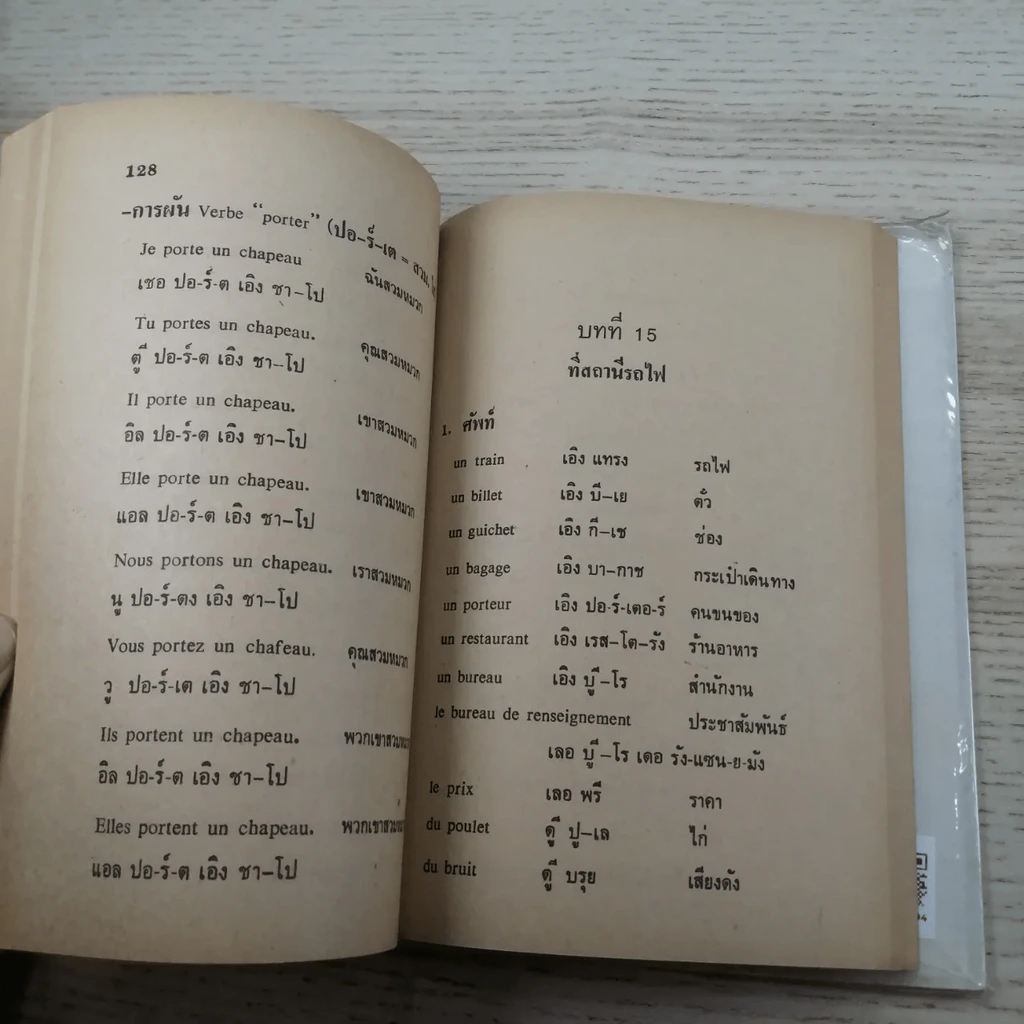 128
-การผัน Verbe "porter" (ปอ-ร์-เต = สวม,
Je porte un chapeau ฉันสวมหมวก
เชอ ปอ-ร์-ต เอิง ชา-โป
Tu portes un chapeau. คุณสวมหมวก
ตู ปอ-ร์-ต เอิง ชา-โป
Il porte un chapeau. เขาสวมหมวก
อิล ปอ-ร์-ต เอิง ชา-โป
Elle porte un chapeau. เขาสวมหมวก
แอล ปอ-ร์-ต เอิง ชา-โป
Nous portons un chapeau. เราสวมหมวก
นู ปอ-ร์-ตง เอิง ชา-โป
Vous portez un chafeau. คุณสวมหมวก
วู ปอ-ร์-เต เอิง ชา-โป
Ils portent un chapeau. พวกเขาสวมหมวก
อิล ปอ-ร์-ต เอิง ชา-โป
Elles portent un chapeau. พวกเขาสวมหมวก
แอล ปอ-ร์-ต เอิง ชา-โป
บทที่ 15
ที่สถานีรถไฟ
1. ศัพท์
un train เอิง แทรง รถไฟ
un billet เอิง บี-เย ตั๋ว
un guichet เอิง กี-เช ช่อง
un bagage เอิง บา-กาช กระเป๋าเดินทาง
un porteur เอิง ปอ-ร์-เตอ-ร์ คนขนของ
un restaurant เอิง เรส-โต-รัง ร้านอาหาร
un bureau เอิง บูี-โร สำนักงาน
le bureau de renseignement ประชาสัมพันธ์
เลอ บูี-โร เดอ รัง-แซน-ย-มัง
le prix เลอ พรี ราคา
du poulet ดูี ปู-เล ไก่
du bruit ดูี บรุย เสียงดัง